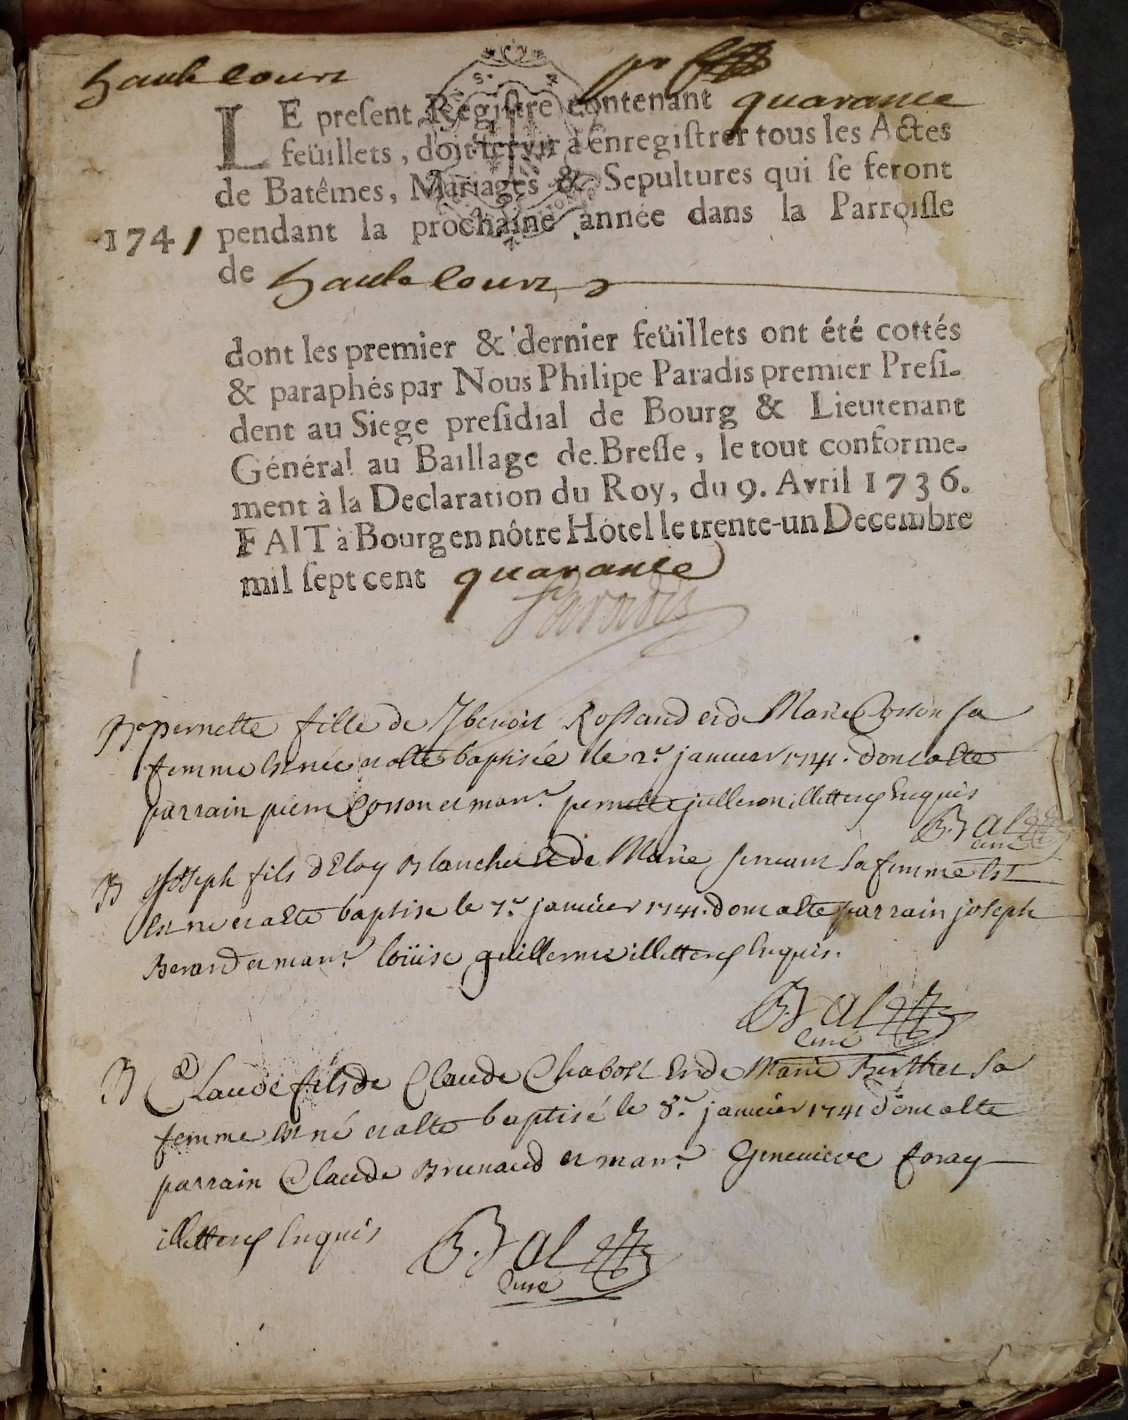 haute court
LE present Registre contenant quarante
feüillets, doit servir à enregistrer tous les Actes
de Batêmes, Mariages & Sepultures qui se feront
1741 pendant la prochaine année dans la Parroisse
de haute court
dont les premier & dernier feüillets ont été cottés
& paraphés par Nous Philipe Paradis premier Presi-
dent au Siege presidial de Bourg & Lieutenant
Général au Baillage de Bresse, le tout conforme-
ment à la Declaration du Roy, du 9. Avril 1736.
FAIT à Bourg en nôtre Hôtel le trente-un Decembre
mil sept cent quarante
Paradis
Bo pernette fille de benoit Rossand et de Marie Cosson sa
femme est née et a été baptisée le 2r. janvier 1741. dont a été
parrain pierre Cosson et marr. pernette julleron illetteres Enquis
Bal
curé
B joseph fils d'Eloy Blanchet et de Marie servant sa femme est
Est né et a été baptise le 7r. janvier 1741. dont a été parrain joseph
Berard et marr. loüise guillerme illetteres Enquis.
Bal
curé
B Claude fils de Claude Chabost Et de Marie Berthet sa
femme est né et a été baptisé le 8r. janvier 1741 dont a été
parrain Claude Brunaud et marr. Genevieve foray
illetteres Enquis
Bal
curé